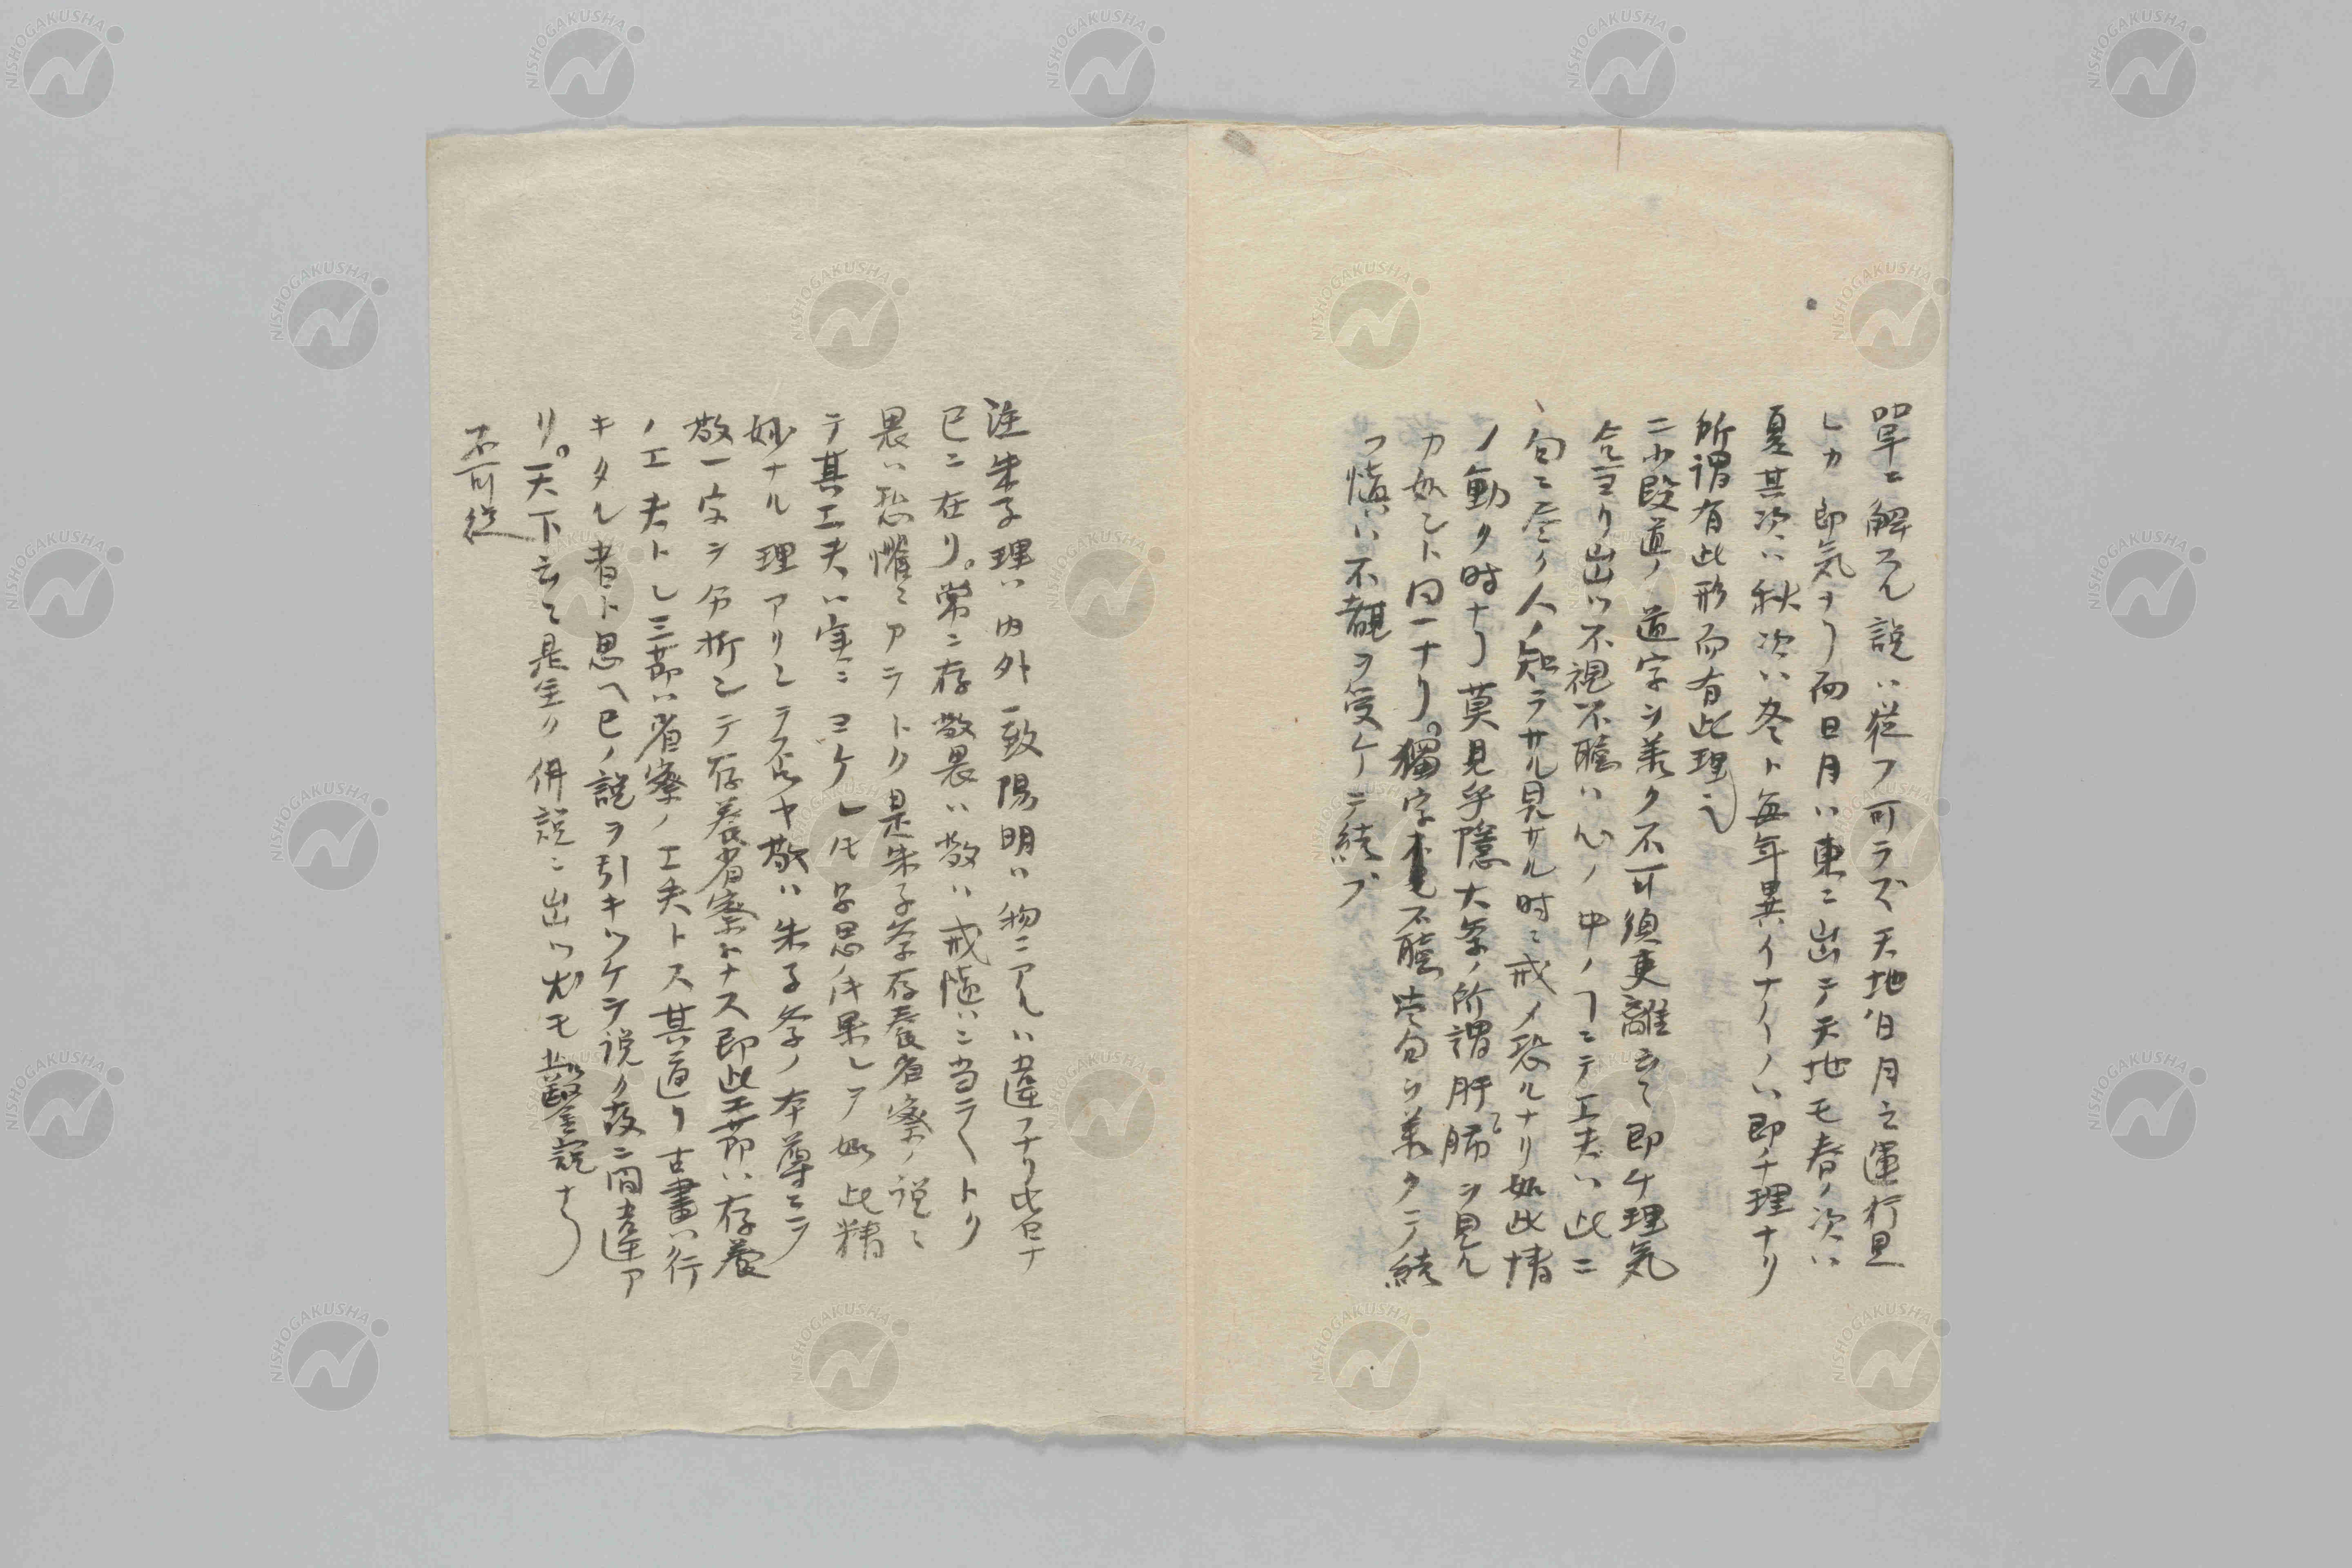 単ニ解スル説ハ従フ可ラズ天地日月之運行是
レカ即気ナリ而日月ハ東ニ出テ天地モ春ノ次ハ
夏其次ハ秋次ハ冬ト毎年異イナイノハ即チ理ナリ
所謂有此形而有此理也
二小段道ノ道字ヲ兼ク不可須臾離云々即ケ理気
合ヨリ出ツ不視不聴ハ心ノ中ノヿニテ工夫ハ此ニ
句ニ尽ク人ノ知ラサル見サル時ニ戒メ恐ルナリ如此情
ノ動ク時ナリ莫見乎隠大学ノ所謂肝肺ヲ見ル
カ如シト同一ナリ。獨字不聴ノ句ヲ兼クテ結
フ慎ハ不覩ヲ受ケテ結ブ
注朱子理ハ内外一致陽明ハ物ニアルハ違フナリ此皆ナ
已ニ在リ。常ニ存敬畏ハ敬ハ戒慎ニ当ラクトリ
畏ハ恐懼ニアテトク是朱子学存養省察ノ説ニ
テ其工夫ハ実ニヨケレ𪜈子思ノ果シア如此精
妙ナル理アリシテ否ヤ敬ハ朱子学ノ本尊ニテ
敬一字ヲ分析シテ存養省察トナス即此二節ハ存養
ノ工夫トシ三節ハ省察ノ工夫トス其通リ古書ハ行
キタル者ト思ヘ已ノ説ヲ引キツケテ説ク故ニ間違ア
リ。天下云々是全ク併説ニ出ツ尤モ説ナリ
不可従
NISHOGAKUSHA